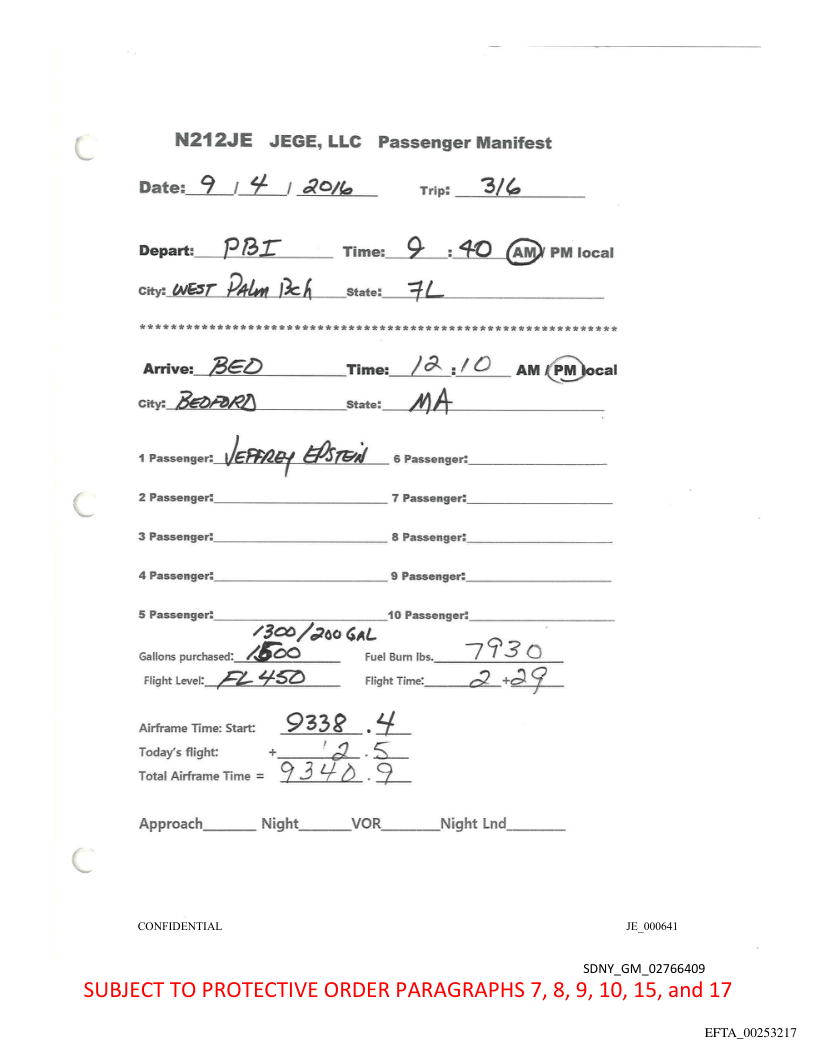 N212JE JEGE, LLC Passenger Manifest
Date: 9 / 4 / 2016 Trip: 316
Depart: PBI Time: 9 : 40 AM / PM local
City: WEST PALM BCH State: FL
*************************************************************
Arrive: BED Time: 12 : 10 AM / PM local
City: BEDFORD State: MA
1 Passenger: JEFFREY EPSTEIN 6 Passenger:
2 Passenger: 7 Passenger:
3 Passenger: 8 Passenger:
4 Passenger: 9 Passenger:
5 Passenger: 10 Passenger:
1300/200 GAL
Gallons purchased: 1500 Fuel Burn lbs. 7930
Flight Level: FL 450 Flight Time: 2 + 29
Airframe Time: Start: 9338 . 4
Today's flight: + 2 . 5
Total Airframe Time = 9340 . 9
Approach Night VOR Night Lnd
CONFIDENTIAL JE_000641
SDNY_GM_02766409
SUBJECT TO PROTECTIVE ORDER PARAGRAPHS 7, 8, 9, 10, 15, and 17
EFTA_00253217